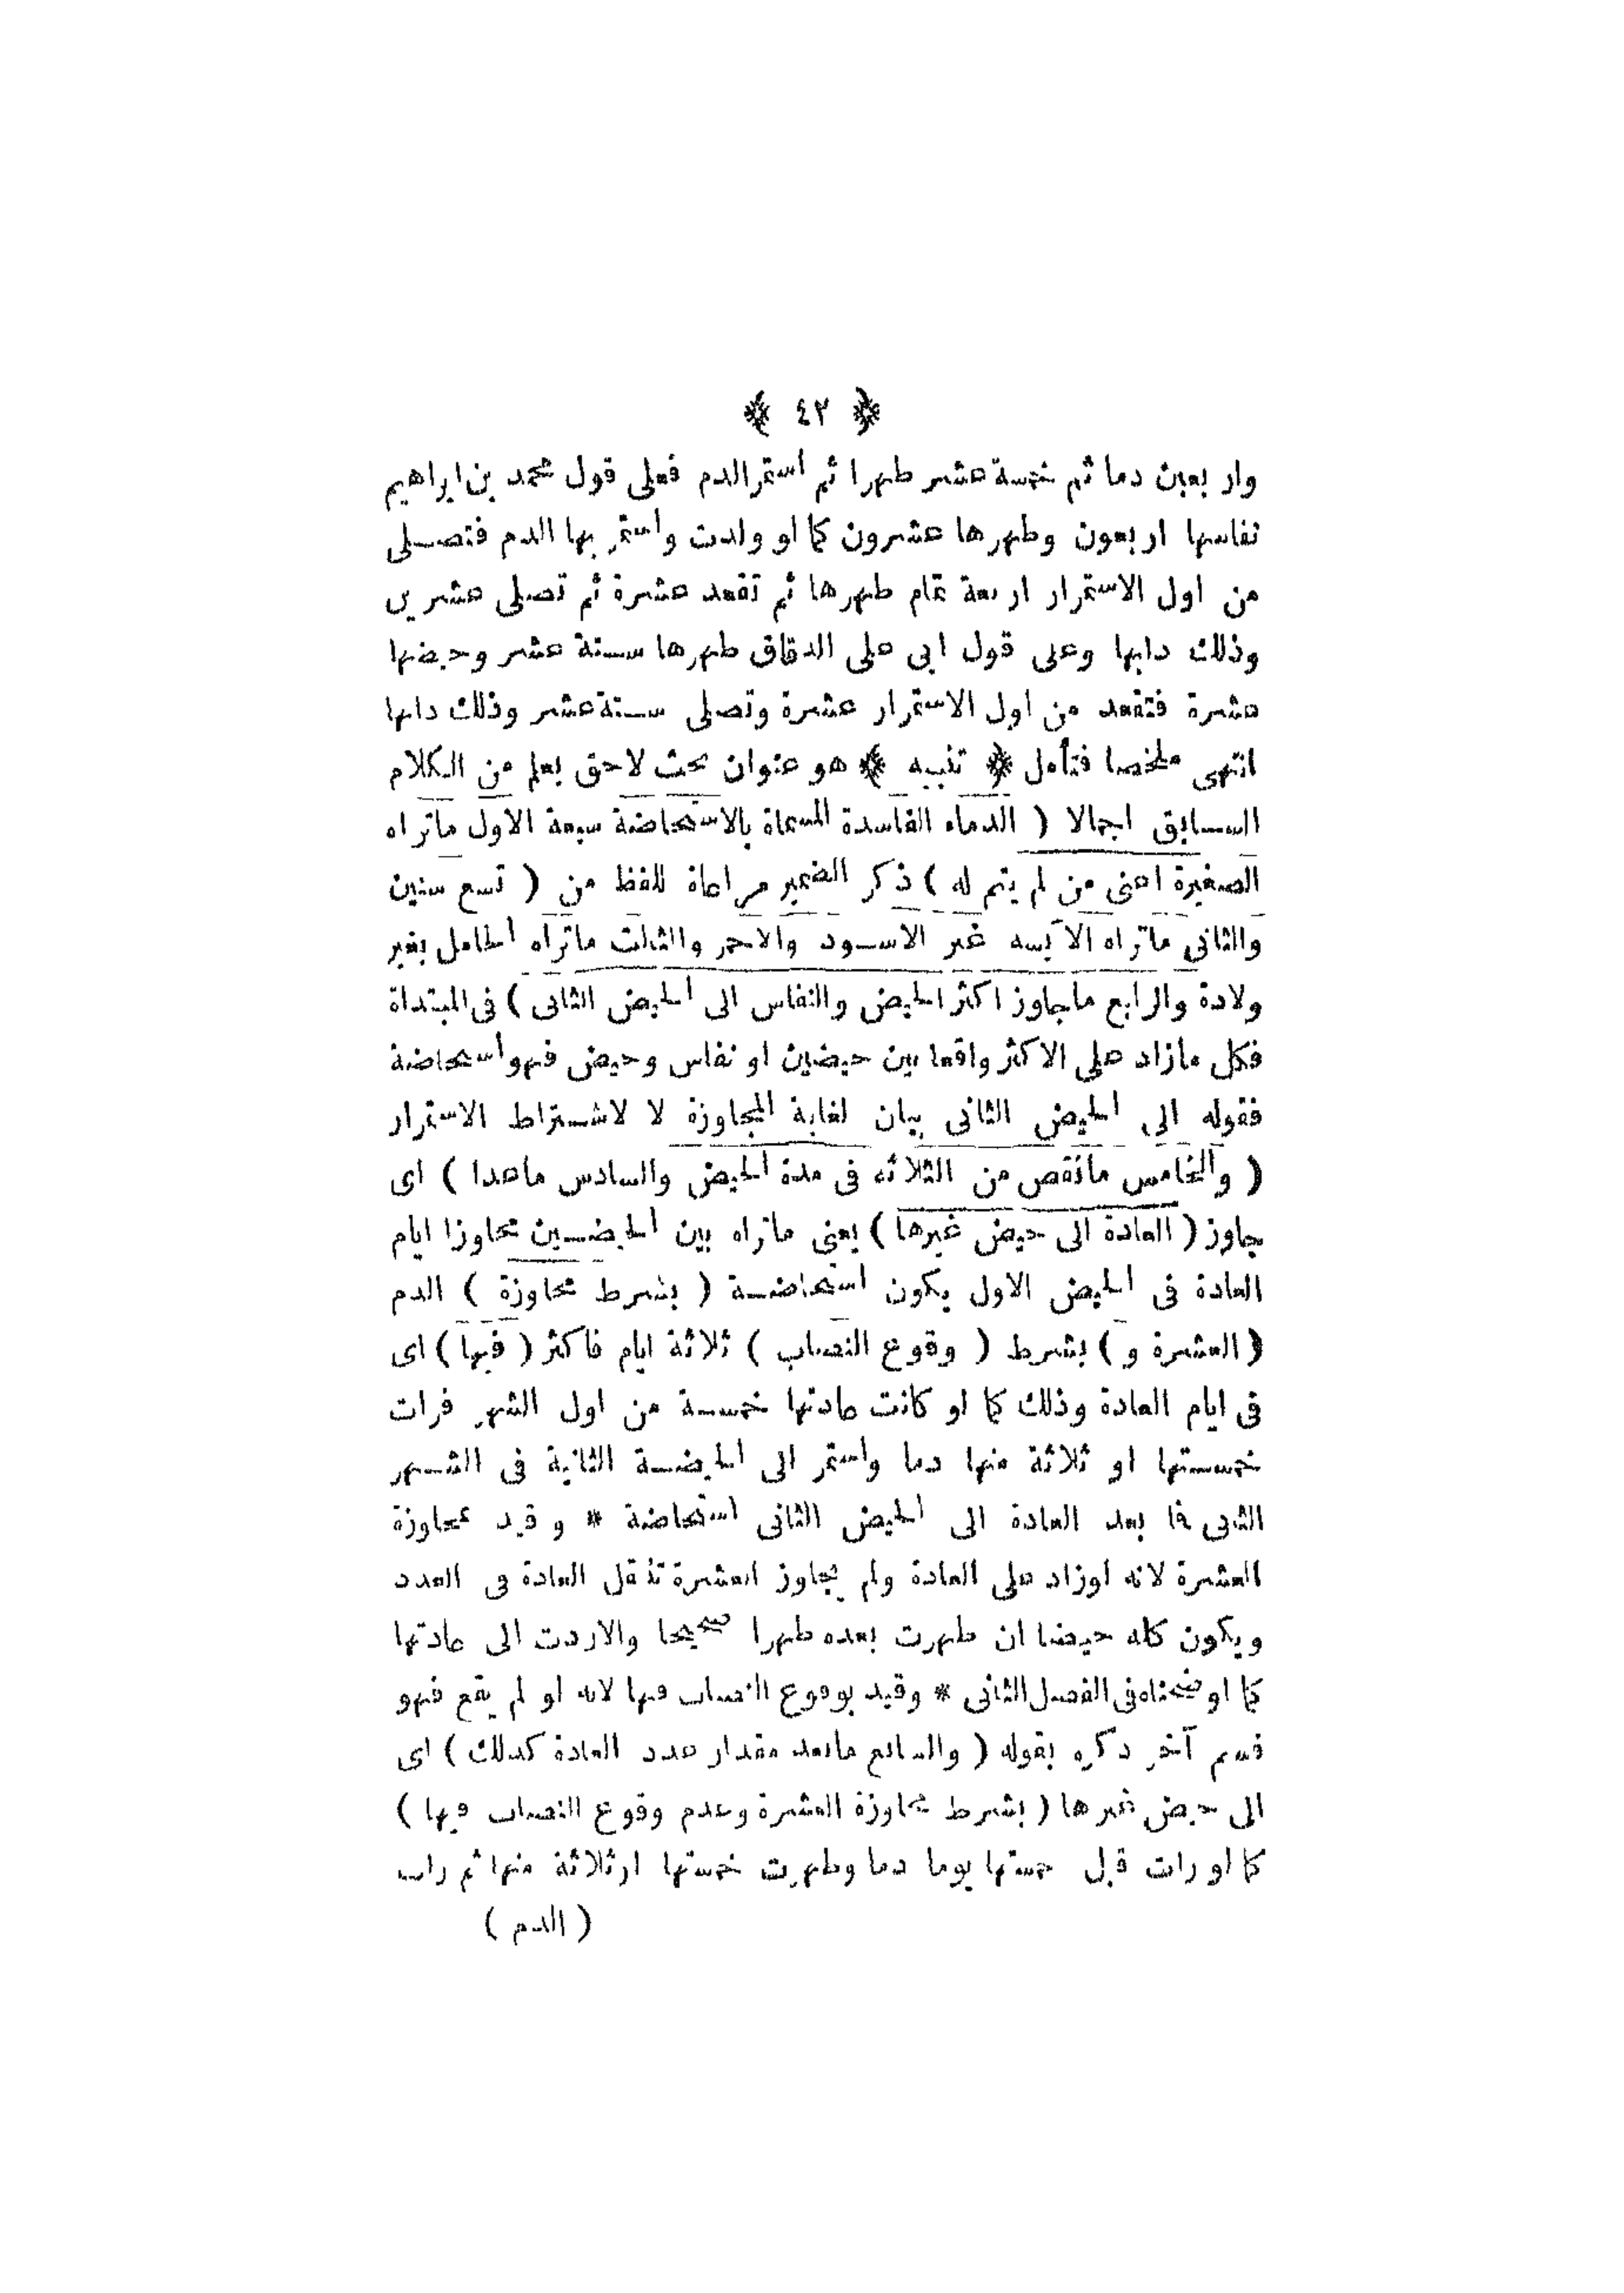 ﴿ ٤٢ ﴾
واربعين دما ثم خمسة عشر طهرا ثم استمر الدم فعلى قول محمد بن ابراهيم
نفاسها اربعون وطهرها عشرون كما لو ولدت واستمر بها الدم فتصلى
من اول الاستمرار اربعة تمام طهرها ثم تقعد عشرة ثم تصلى عشرين
وذلك دابها وعلى قول ابى على الدقاق طهرها ستة عشر وحيضها
عشرة فتقعد من اول الاستمرار عشرة وتصلى ستة عشر وذلك دابها
انتهى ملخصا فتأمل ﴿ تنبيه ﴾ هو عنوان بحث لاحق يعلم من الكلام
السابق اجمالا ( الدماء الفاسدة المسماة بالاستحاضة سبعة الاول ماتراه
الصغيرة اعنى من لم يتم له ) ذكر الضمير مراعاة للفظ من ( تسع سنين
والثانى ماتراه الآيسه غير الاسود والاحمر والثالث ماتراه الحامل بغير
ولادة والرابع ماجاوز اكثر الحيض والنفاس الى الحيض الثانى ) فى المبتداة
فكل مازاد على الاكثر واقعا بين حيضين او نفاس وحيض فهو استحاضة
فقوله الى الحيض الثانى بيان لغاية المجاوزة لا لاشتراط الاستمرار
( والخامس مانقص من الثلاثه فى مدة الحيض والسادس ماعدا ) اى
جاوز ( العادة الى حيض غيرها ) يعنى ماتراه بين الحيضين مجاوزا ايام
العادة فى الحيض الاول يكون استحاضة ( بشرط مجاوزة ) الدم
( العشرة و ) بشرط ( وقوع النصاب ) ثلاثة ايام فاكثر ( فيها ) اى
فى ايام العادة وذلك كما لو كانت عادتها خمسة من اول الشهر فرات
خمستها او ثلاثة منها دما واستمر الى الحيضة الثانية فى الشهر
الثانى فما بعد العادة الى الحيض الثانى استحاضة * وقيد بمجاوزة
العشرة لانه لوزاد على العادة ولم يجاوز العشرة تنقل العادة فى العدد
ويكون كله حيضا ان طهرت بعده طهرا صحيحا والاردت الى عادتها
كما اوضحناه فى الفصل الثانى * وقيد بوقوع النصاب فيها لانه لو لم يقع فهو
قسم آخر ذكره بقوله ( والسابع مابعد مقدار عدد العادة كذلك ) اى
الى حيض غيرها ( بشرط مجاوزة العشرة وعدم وقوع النصاب فيها )
كما لو رات قبل خمستها يوما دما وطهرت خمستها اوثلاثة منها ثم رات
( الدم )